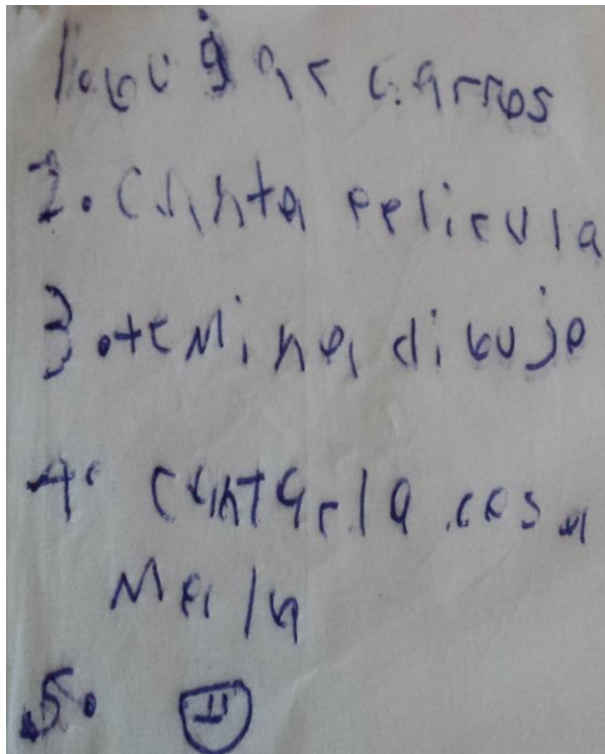 1. bugar carros
2. cunta pelicula
3. temina dibujo
4. cuntar la cosa
mala
5.